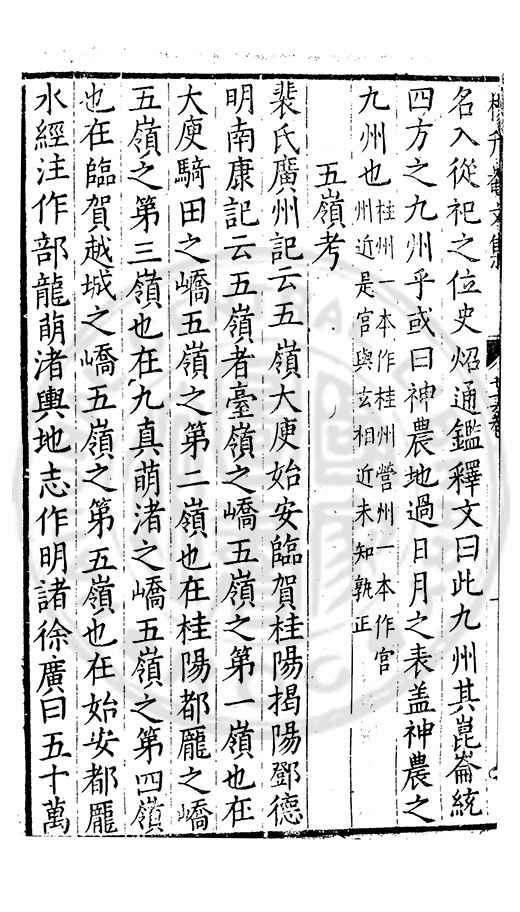 名入從祀之位史炤通鑑釋文曰此九州其崑崙統
四方之九州乎或曰神農地過日月之表盖神農之
九州也桂州一本作桂州營州一本作宫
州近是宫與玄相近未知孰正
五嶺考
裴氏廣州記云五嶺大庾始安臨賀桂陽揭陽鄧德
明南康記云五嶺者臺嶺之嶠五嶺之第一嶺也在
大庾騎田之嶠五嶺之第二嶺也在桂陽都龎之嶠
五嶺之第三嶺也在九真萌渚之嶠五嶺之第四嶺
也在臨賀越城之嶠五嶺之第五嶺也在始安都龎
水經注作部龍萌渚輿地志作明諸徐廣曰五十萬